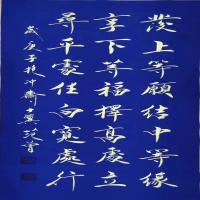 發上等願結中等緣
享下等福擇高處立
尋平處住向寬處行
歲庚子於冲齋